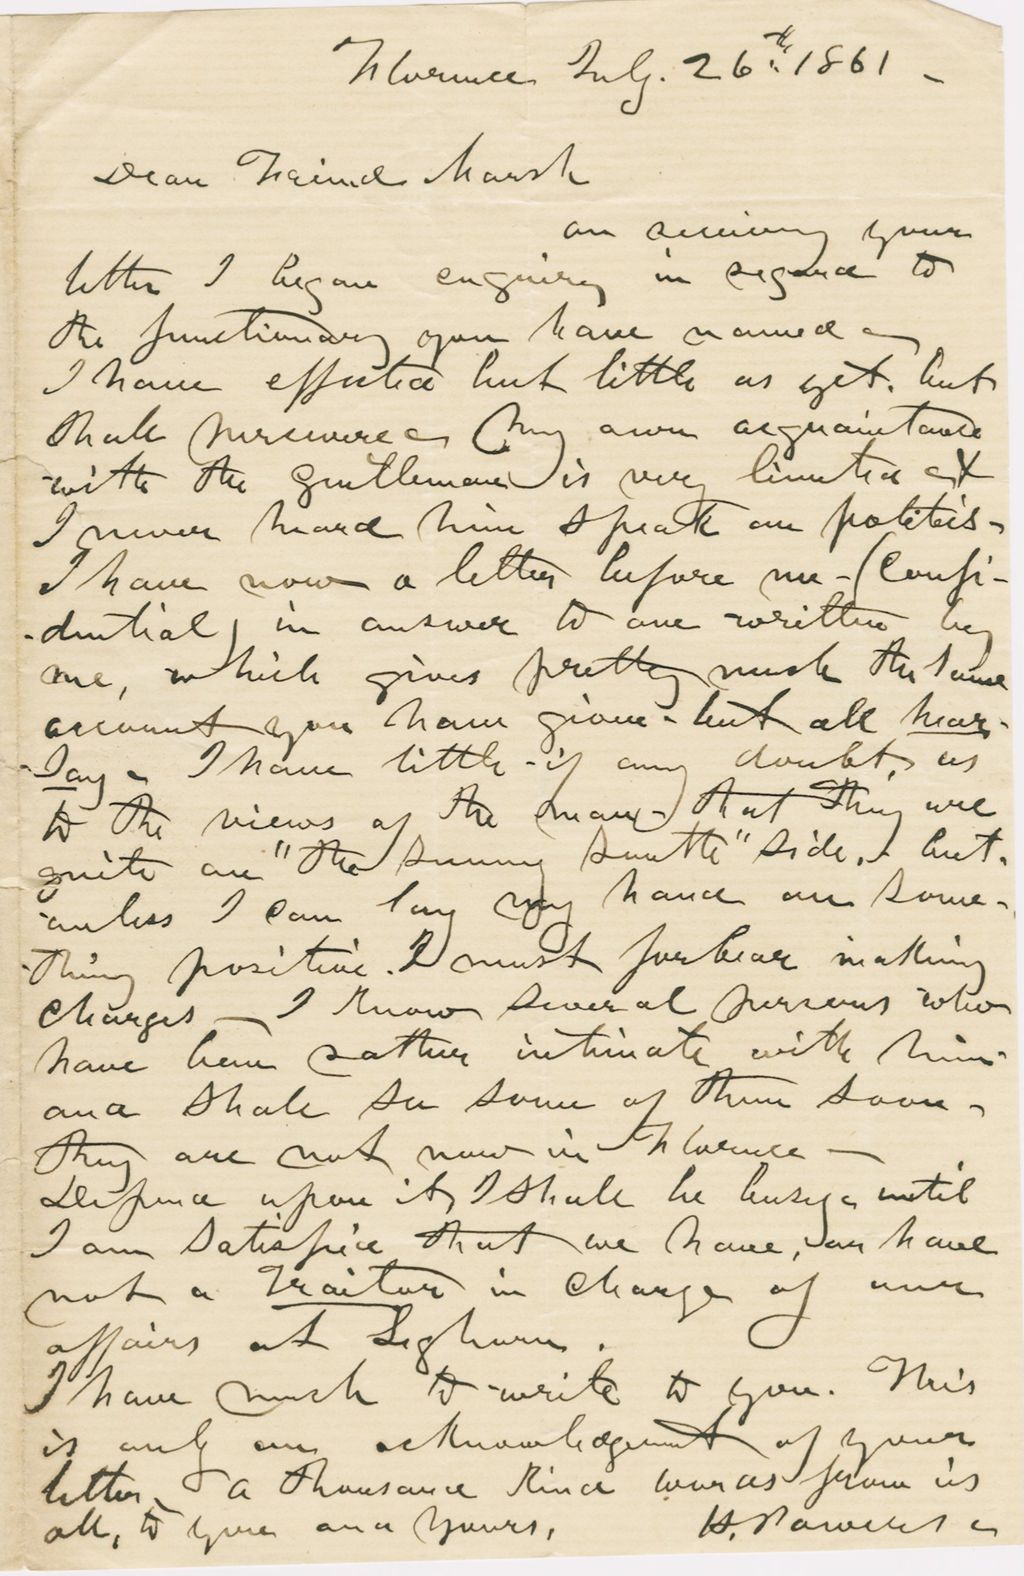 Florence July. 26th 1861 -
Dear Friend Marsh
on receiving your
letter I began enquiry in regard to
the functionary you have named -
I have effected but little as yet. but
shall persevere - (my own acquaintance
with the gentleman is very limited &
I never heard him speak on politics -
I have now a letter before me - (Confi-
-dential) in answer to one written by
me, which gives pretty much the same
account you have given - but all hear-
-say - I have little - if any doubt, as
to the views of the man - that they are
quite on "the sunny south" side. - but.
unless I can lay my hand on some-
-thing positive. I must forbear making
charges - I know several persons who
have been rather intimate with him -
and shall see some of them soon -
they are not now in Florence -
Depend upon it, I shall be busy - until
I am satisfied that we have, or have
not a Traitor in charge of our
affairs at Leghorn.
I have much to write to you. This
is only an acknowledgement of your
letter. a thousand kind words from us
all, to you and yours, H. Powers -